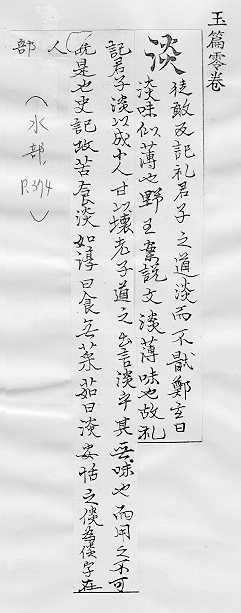 玉篇零卷
淡
徒敢反記礼君子之道淡而不猒鄭玄曰
淡味似薄也野王案說文淡薄味也故礼
記君子淡以成小人甘以壞老子道之出言淡乎其無味也而用之不可
既是也史記攻苦食淡如淳曰食無菜茹曰淡安恬之惔為惔字在
人部
(水部,
P.374
)